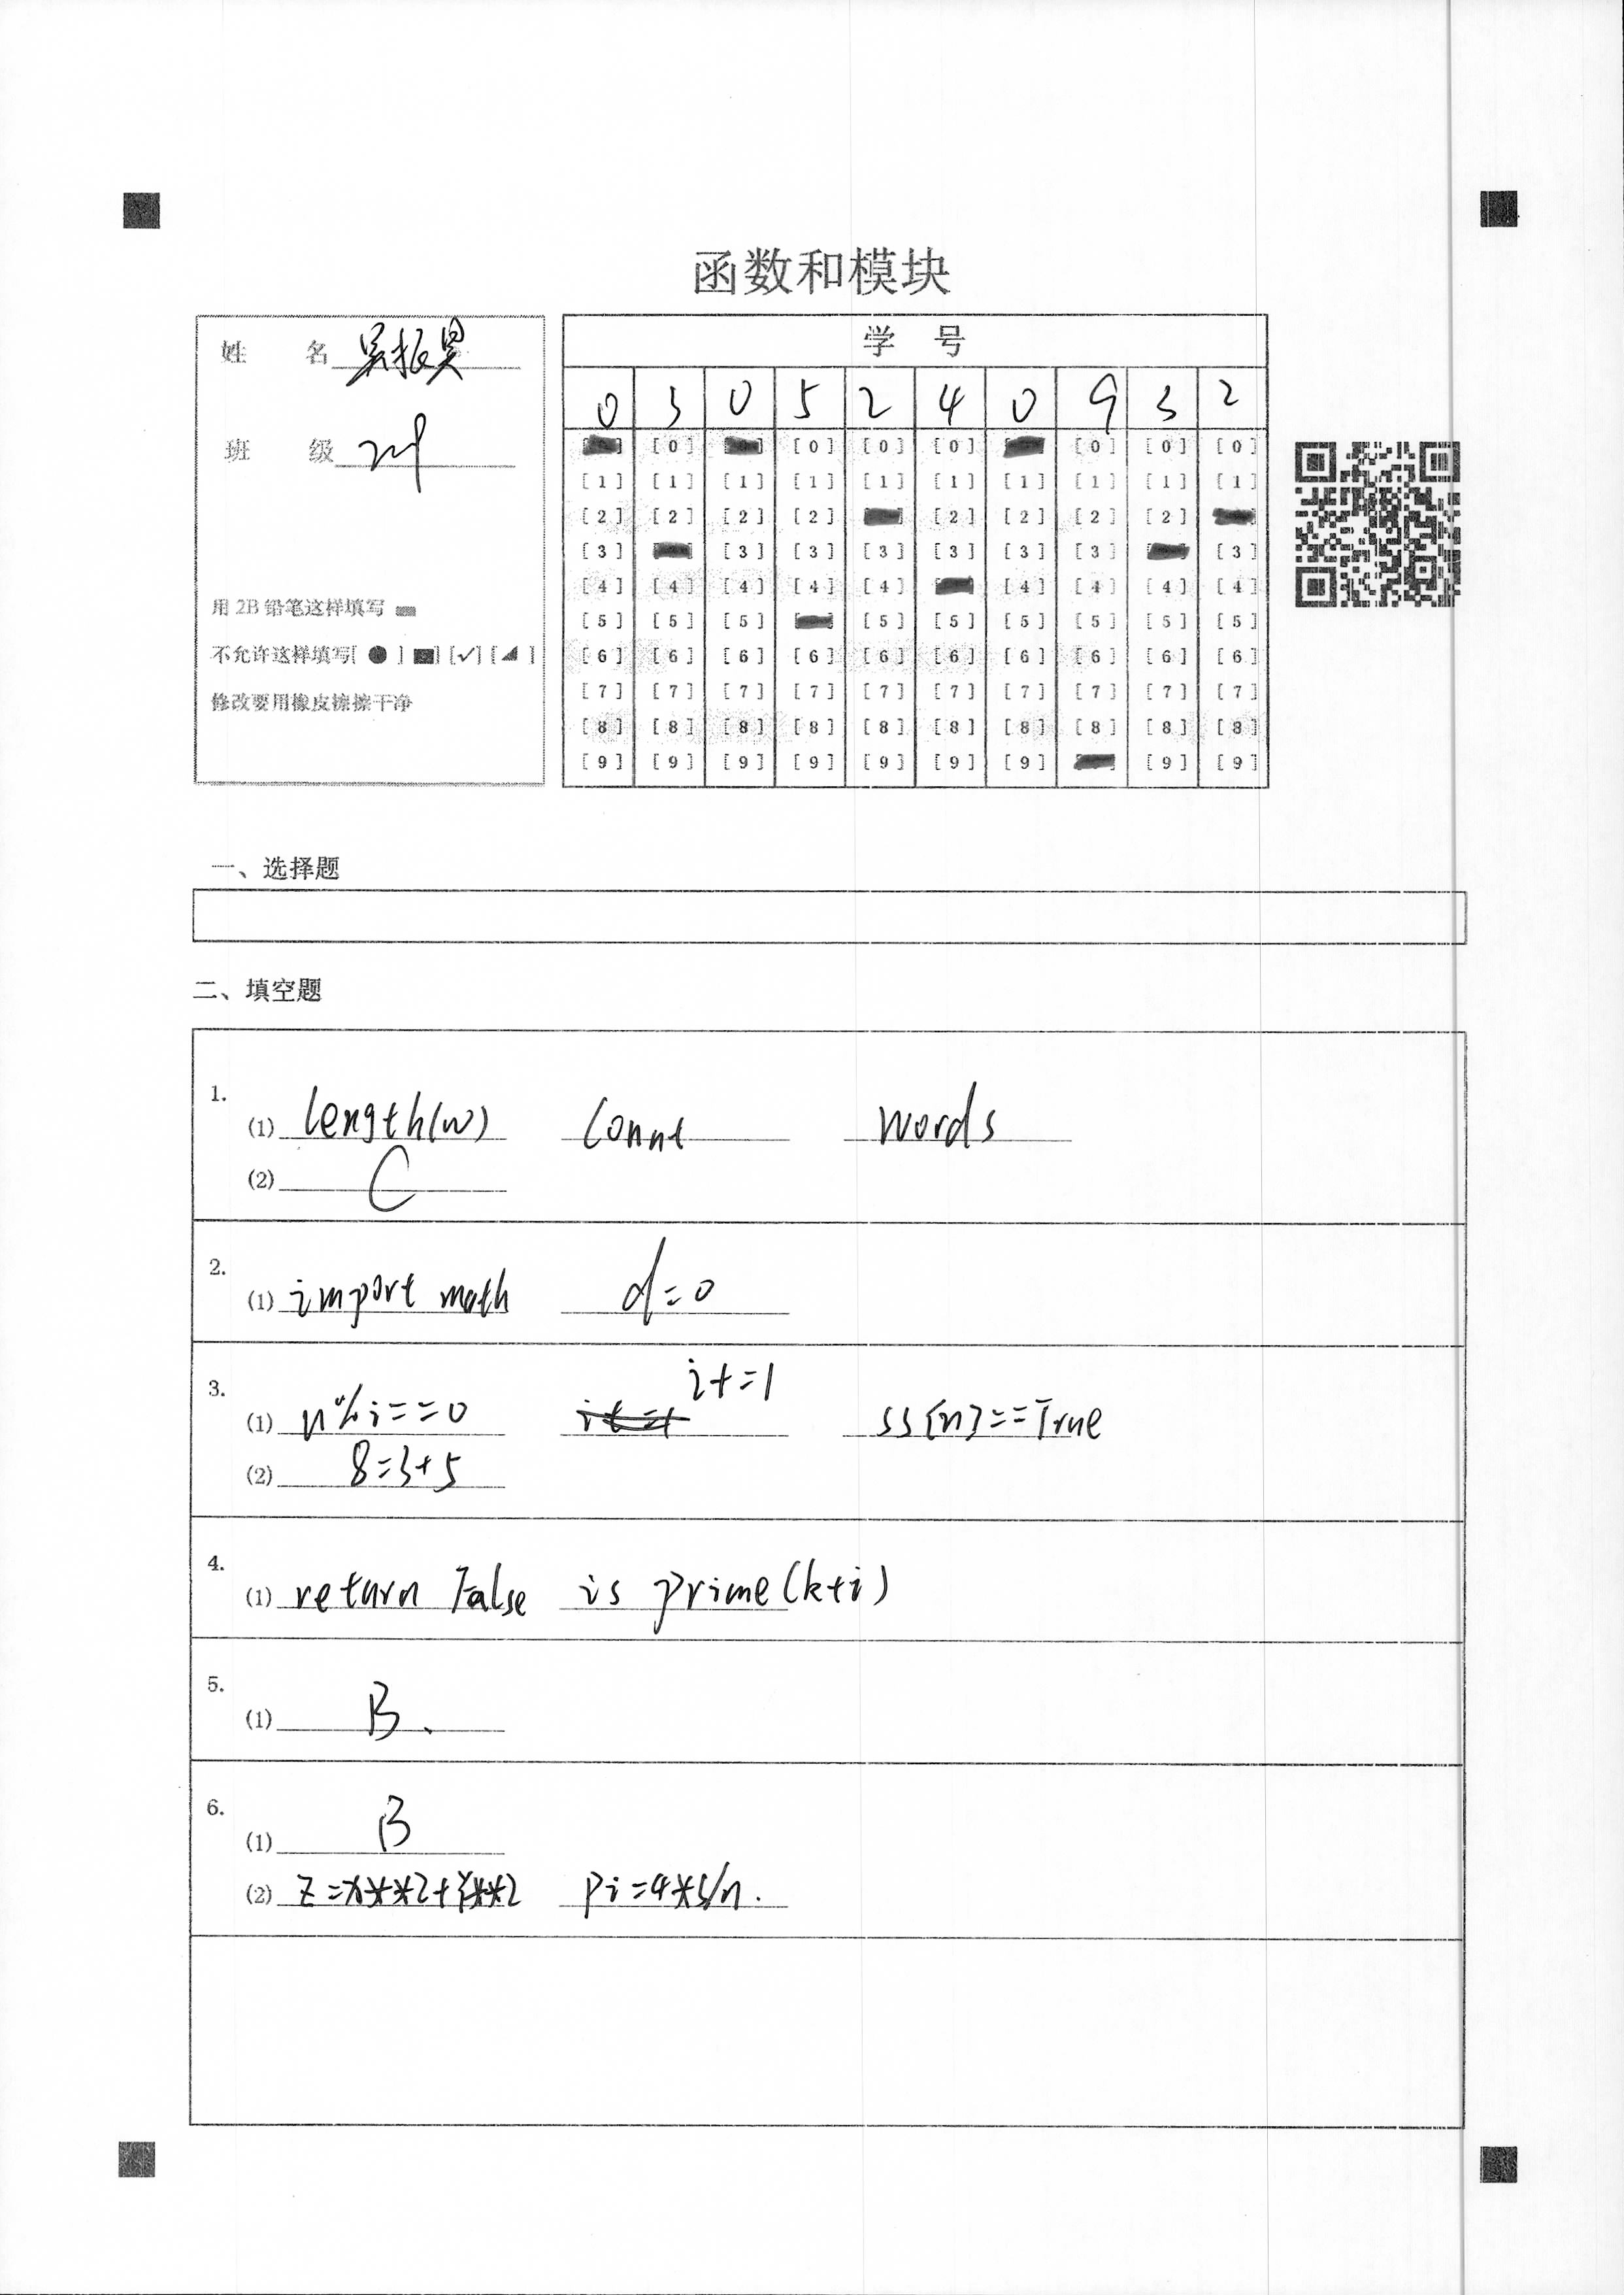 函数和模块
姓 名 吴振昊
班 级
用 2B 铅笔这样填写
不允许这样填写[ ● ] [✓] [ ]
修改要用橡皮擦擦干净
学 号
0 3 0 5 2 4 0 9 3 2
[0] [0] [0] [0] [0] [0] [0]
[1] [1] [1] [1] [1] [1] [1] [1] [1] [1]
[2] [2] [2] [2] [2] [2] [2] [2]
[3] [3] [3] [3] [3] [3] [3] [3]
[4] [4] [4] [4] [4] [4] [4] [4] [4]
[5] [5] [5] [5] [5] [5] [5] [5] [5]
[6] [6] [6] [6] [6] [6] [6] [6] [6] [6]
[7] [7] [7] [7] [7] [7] [7] [7] [7] [7]
[8] [8] [8] [8] [8] [8] [8] [8] [8] [8]
[9] [9] [9] [9] [9] [9] [9] [9] [9]
一、选择题
二、填空题
1.
(1) length(w) count words
(2) C
2.
(1) import math d=0
3.
(1) n%i==0 i+=1 ss[n]==True
(2) 8=3+5
4.
(1) return False is prime(k+i)
5.
(1) B.
6.
(1) B
(2) z=x**2+y**2 pi=4*s/n.